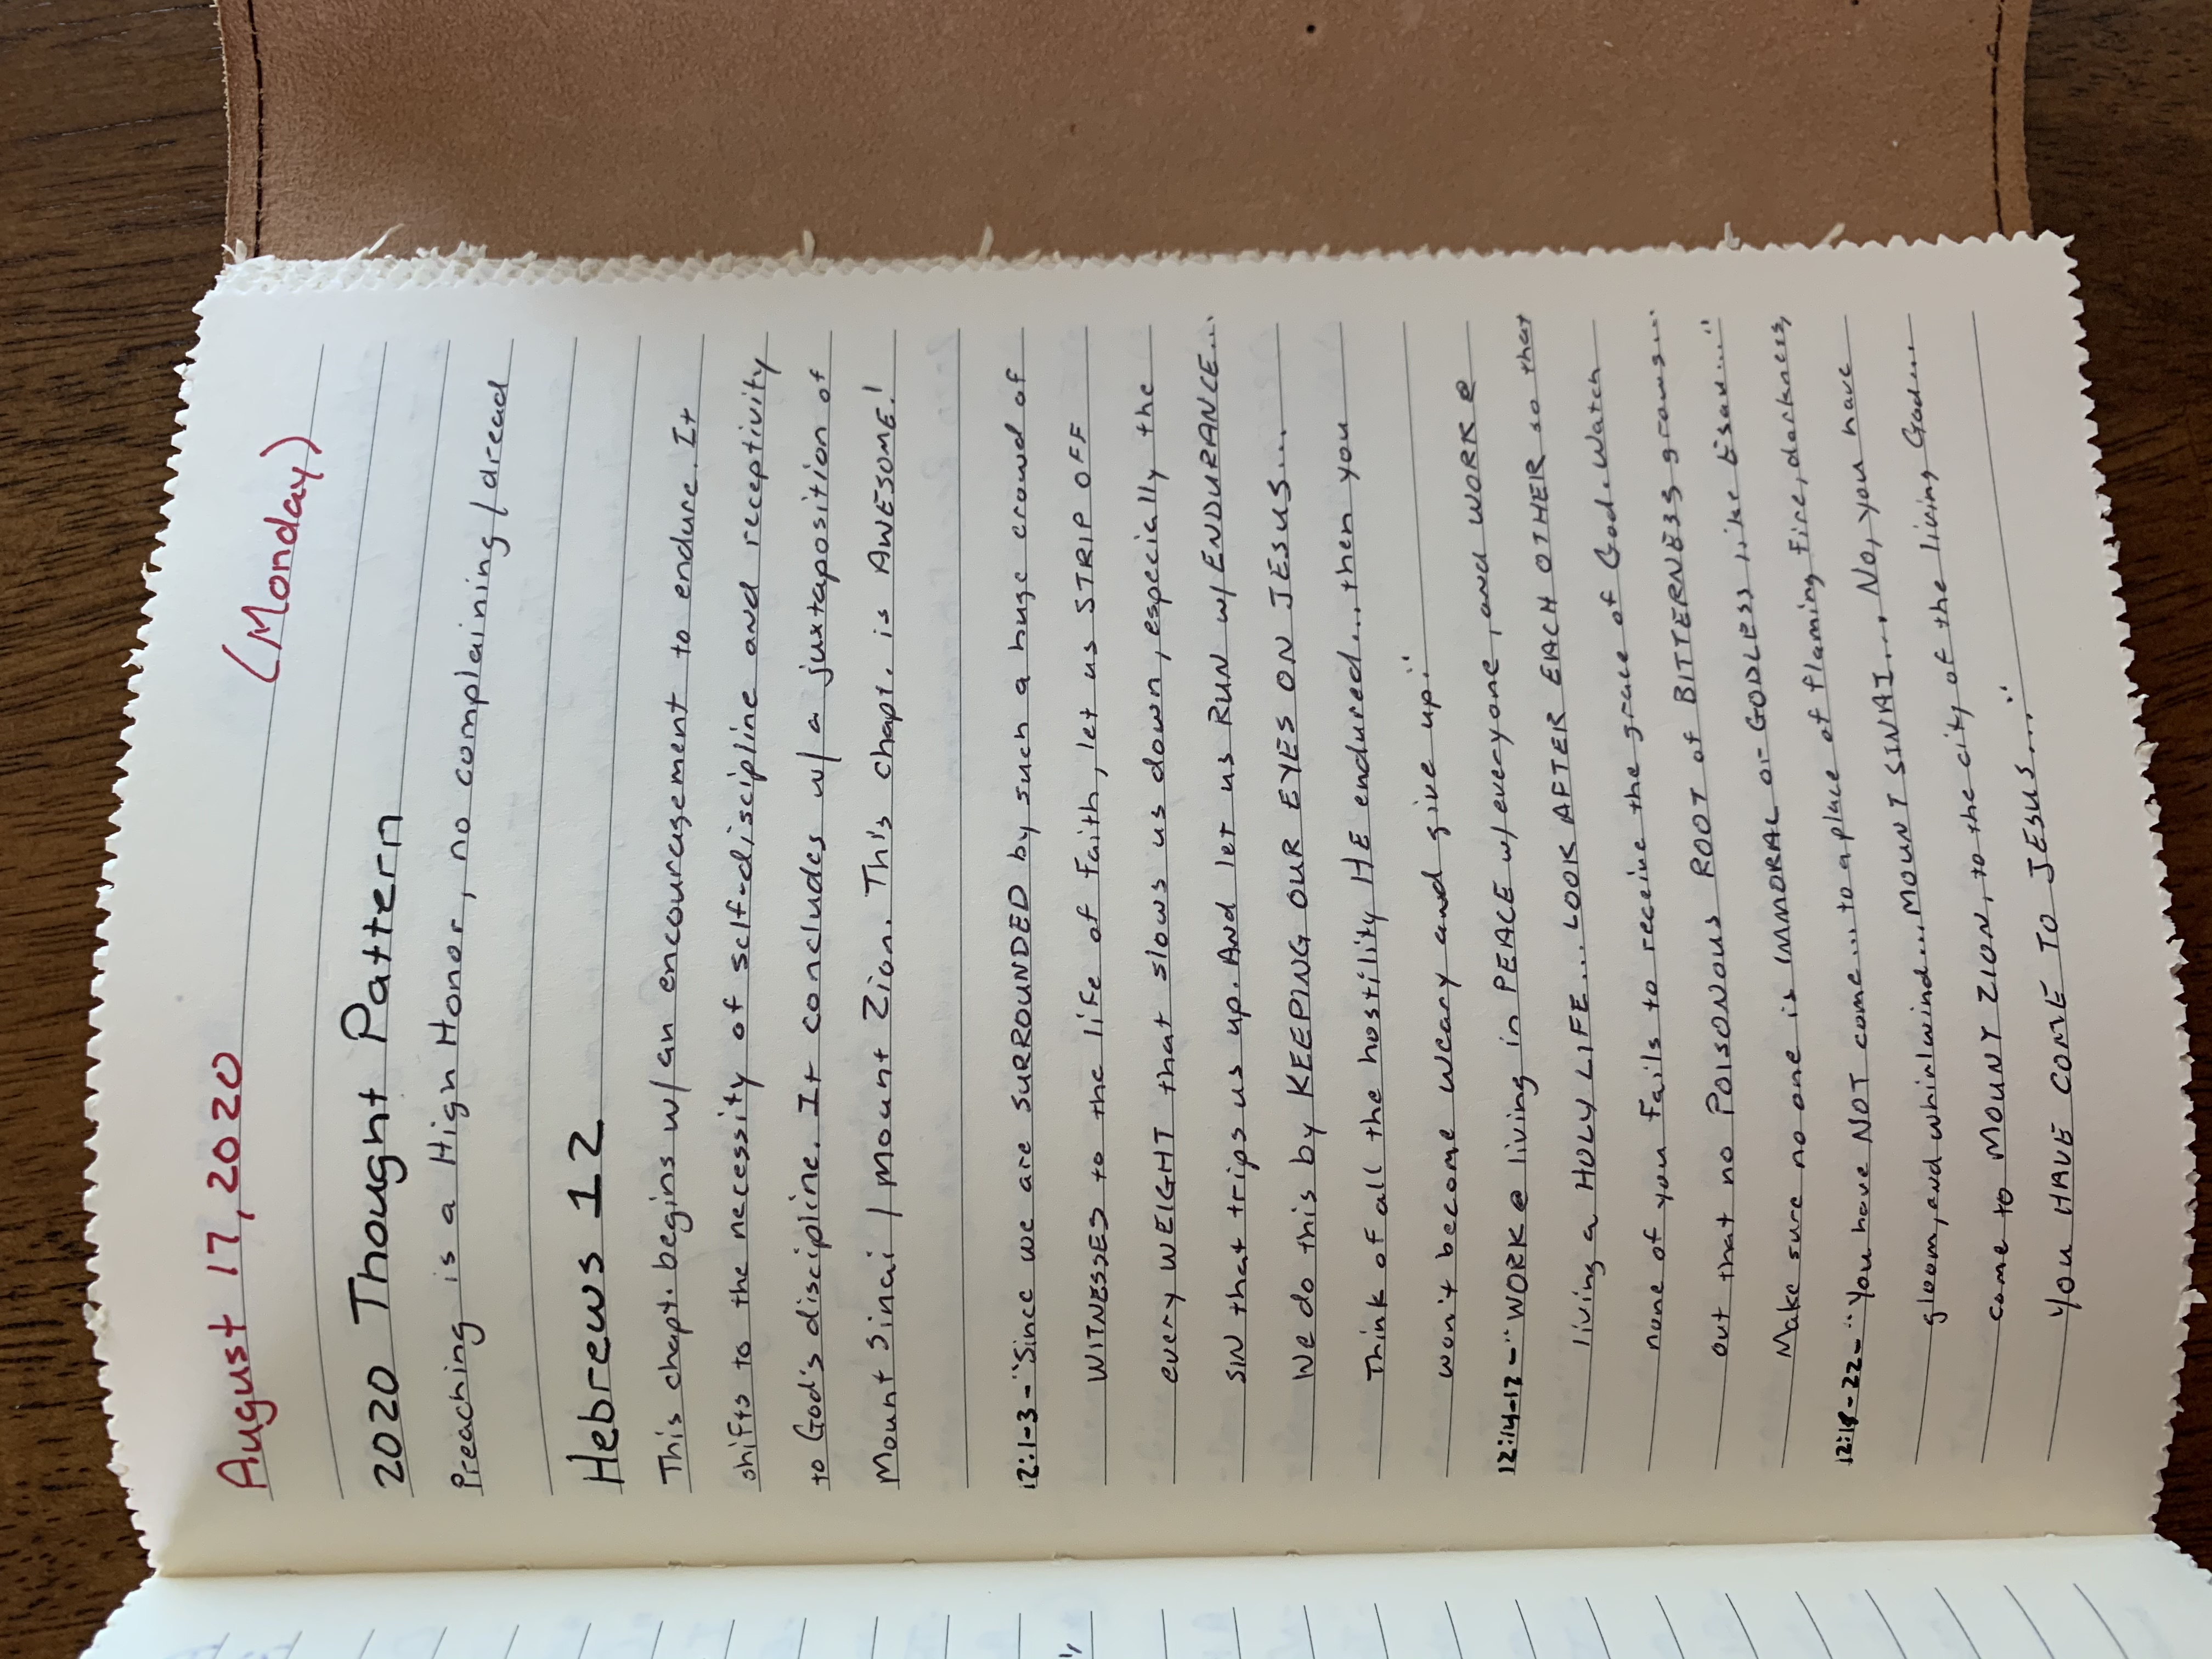 August 17, 2020 (Monday)
2020 Thought Pattern
Preaching is a High Honor, no complaining/dread
Hebrews 12
This chapt. begins w/an encouragement to endure. It
shifts to the necessity of self-discipline and receptivity
to God's discipline. It concludes w/a juxtaposition of
Mount Sinai / Mount Zion. This chapt. is AWESOME!
12:1-3-"Since we are SURROUNDED by such a huge crowd of
WITNESSES to the life of Faith, let us STRIP OFF
every WEIGHT that slows us down, especially the
SIN that trips us up. And let us RUN w/ ENDURANCE...
We do this by KEEPING OUR EYES ON JESUS...
Think of all the hostility HE endured... then you
won't become weary and give up."
12:14-17-"WORK @ living in PEACE w/everyone, and WORK @
living a HOLY LIFE... LOOK AFTER EACH OTHER so that
none of you fails to receive the grace of God. Watch
out that no POISONOUS ROOT of BITTERNESS grows...
Make sure no one is IMMORAL or GODLESS like Esau..."
12:18-22-"You have NOT come... to a place of flaming fire, darkness,
gloom, and whirlwind... MOUNT SINAI... No, you have
come to MOUNT ZION, to the city of the living God...
You HAVE COME TO JESUS..."